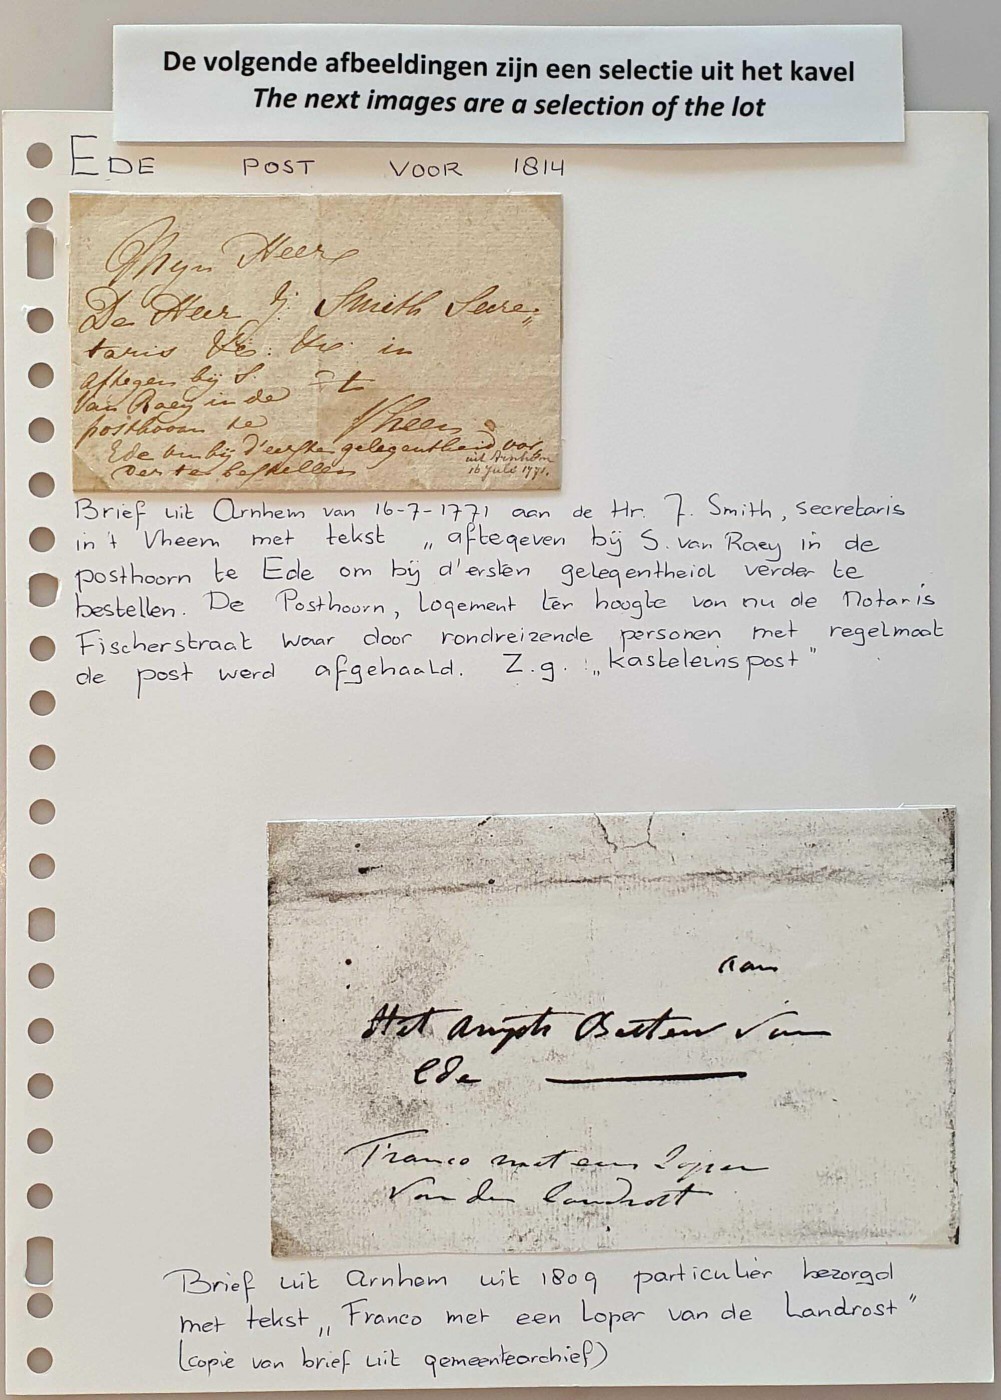 De volgende afbeeldingen zijn een selectie uit het kavel
The next images are a selection of the lot
EDE POST VOOR 1814
Myn Heer
De Heer J. Smith Secre=
taris in
aftegeen bij S. t
van Raeij in de
posthoorn te Vheen
Ede om bij d'eerste gelegentheid vor
der te bestellen
uit Arnhem
16 Julÿ 1771.
Brief uit Arnhem van 16-7-1771 aan de Hr. J. Smith, secretaris
in 't Vheem met tekst „aftegeven bij S. van Raey in de
posthoorn te Ede om bij d'ersten gelegentheid verder te
bestellen. De Posthoorn, Logement ter hoogte van nu de Notaris
Fischerstraat waar door rondreizende personen met regelmaat
de post werd afgehaald. Z.g. „kasteleinspost"
aan
Het Ampts Bestew van
Ede
Franco met een Loper
van den landrost
Brief uit Arnhem uit 1809 particulier bezorgd
met tekst „Franco met een Loper van de Landrost"
(copie van brief uit gemeentearchief)